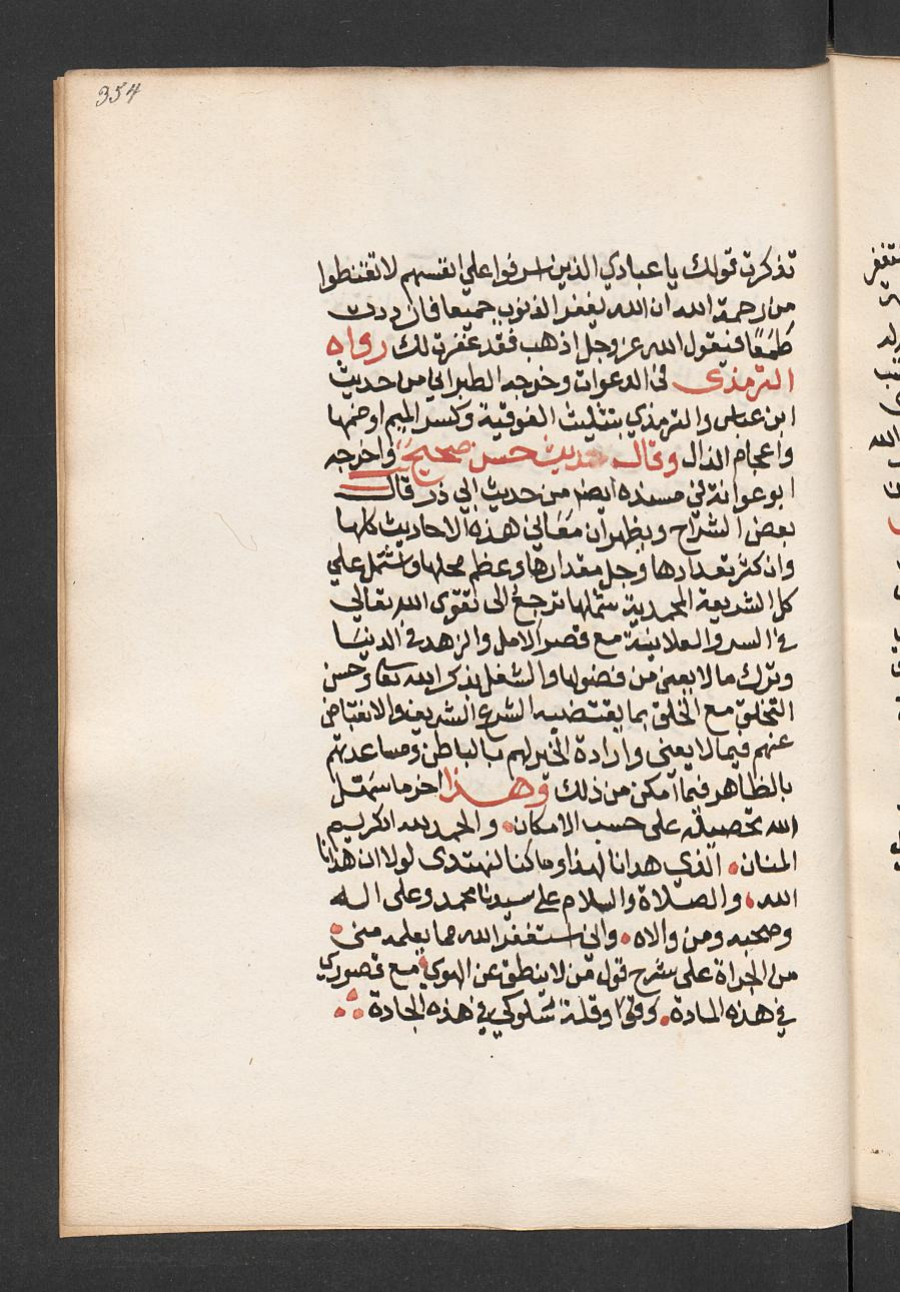 354
تذكرت قولك يا عبادي الذين اسرفوا علي انفسهم لا تقنطوا
من رحمة الله ان الله يغفر الذنوب جميعا فازددت
طمعًا فيقول الله عز وجل اذهب فقد غفرت لك رواه
الترمذى فى الدعوات وخرجه الطبراني من حديث
ابن عباس والترمذي بتثليث الفوقية وكسر الميم او ضمها
واعجام الذال وقال حديث حسن صحيح واخرجه
ابو عوانة في مسنده ايضا من حديث ابي ذر قال
بعض الشراح ويظهر ان معاني هذه الاحاديث كلها
وان كثر تعدادها وجل مقدارها وعظم محلها وتشتمل علي
كل الشريعة المحمدية شملها ترجع الى تقوى الله تعالى
في السر والعلانية مع قصر الامل والزهد في الدنيا
وترك ما لا يعني من فضولها والشغل بذكر الله تعا وحسن
التخلق مع الخلق بما يقتضيه الشرع الشريف والانقباض
عنهم فيما لا يعني وارادة الخير لهم بالباطن ومساعدتهم
بالظاهر فيما امكن من ذلك وهذا اخر ما سهّل
الله تحصيله على حسب الامكان والحمد لله الكريم
المنان الذي هدانا لهذا وما كنا لنهتدى لولا ان هدانا
الله والصلاة والسلام على سيدنا محمد وعلى اله
وصحبه ومن والاه واني استغفر الله مما يعلمه مني
من الجراة على شرح قول من لا ينطق عن الهوي مع قصوري
في هذه المادة وقلة سلوكي في هذه الجادة